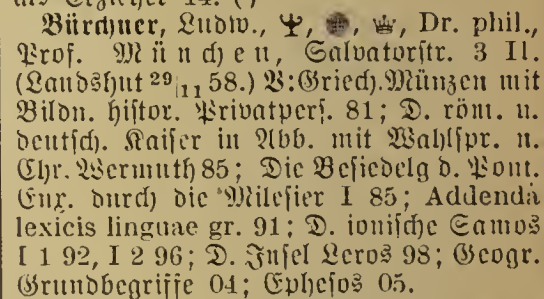 Bürchner, Ludw., Dr. phil.,
Prof. München, Salvatorstr. 3 II.
(Landshut 29|11 58.) V: Griech. Münzen mit
Bildn. histor. Privatpers. 81; D. röm. u.
deutsch. Kaiser in Abb. mit Wahlspr. n.
Chr. Wermuth 85; Die Besiedelg d. Pont.
Eux. durch die Milesier I 85; Addenda
lexicis linguae gr. 91; D. ionische Samos
I 1 92, I 2 96; D. Insel Leros 98; Geogr.
Grundbegriffe 04; Ephesos 05.